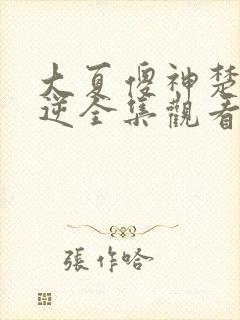 大夏傻神楚
逆全集觀看
張作哈